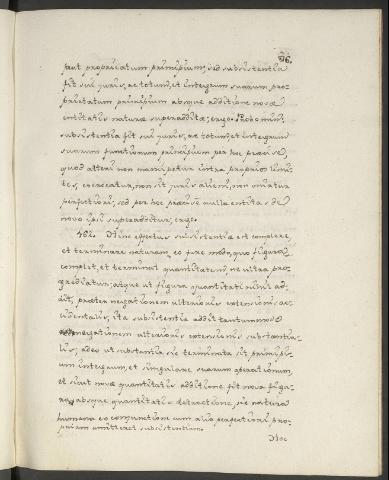 96.
prut propriatum principium, sed subsistentia
fit sui juris, ac totum, et integrum suarum, pro-
prietatum principium absque additione novæ
entitatis naturæ superadditæ; ergo. Probo min:
subsistentia fit sui juris, ac totum, et integrum
suarum functionum principium per hoc præcise,
quod alteri non mancipetur intra proprios limi-
tes, coerceatur, non sit juris alieni, non uniatur
perfectiori, sed per hoc præcise nulla entitas de
novo ipsi superadditur, ergo.
462. Hinc effectus subsistentiæ est complere,
et terminare naturam, eo fere modo, quo figura
complet, et terminat quantitatem, ne ultra pro-
grediatur; atque ut figura quantitati nihil ad-
dit, præter negationem ulterioris extensionis ac-
cidentalis, ita subsistentia addit tantummodo
negationem ulterioris extensionis substantia-
lis; adeo ut substantia sic terminata sit princi-
um integrum, et singulare suarum operationum,
et sicut novæ quantitatis additione fit nova figu-
ra, absque quantitatis detractione, sic natura
humana ex conjunctione cum alio perfectiori pro-
priam amitteret subsistentiam.
Hoc